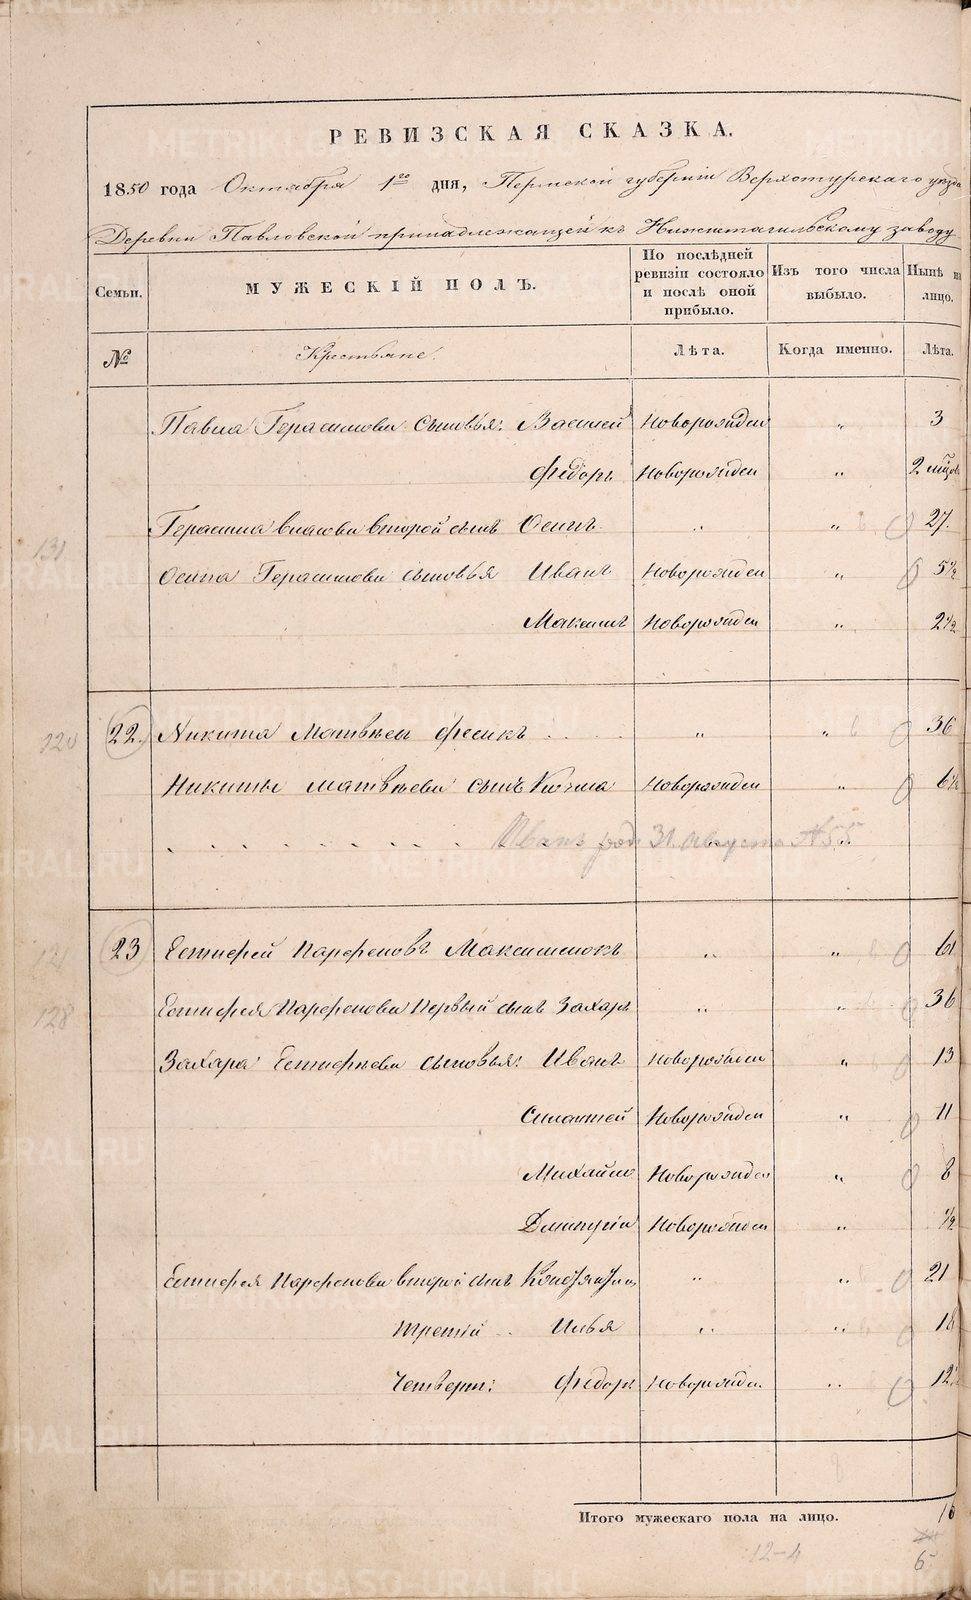 РЕВИЗСКАЯ СКАЗКА.
1850 года Октября 1го дня, Пермской губернии Верхотурскаго уезда
Деревни Павловской принадлежащей къ Нижнетагильскому заводу
Семьи. МУЖЕСКІЙ ПОЛЪ. По послѣдней ревизіи состояло и послѣ оной прибыло. Изъ того числа выбыло. Нынѣ на лицо.
№ Крестьяне. Лѣта. Когда именно. Лѣта.
Павла Герасимова сыновья: Василей Новорожден „ 3
Федоръ Новорожден „ 2
Герасима Власова второй сынъ Осипъ „ „ 27.
131
Осипа Герасимова сыновья Иванъ Новорожден „ 5½
Максимъ Новорожден „ 2½
120 22. Никита Матвѣевъ Фесикъ „ „ 36
Никиты Матвѣева сынъ Козма Новорожден „ 6½
Иванъ род 31 августа
121 23 Естифей Парфеновъ Максименокъ „ „ 61
128 Естифея Парфенова Первый сынъ Захаръ „ „ 36
Захара Естифѣева сыновья: Иванъ Новорожден „ 13
Силантей Новорожден „ 11
Михайло Новорожден „ 8
Дмитрій Новорожден „ ½
Естифея Парфенова второй сынъ Константинъ „ „ 21
третій Илья „ „ 18
Четверт: Федоръ Новорожден „ 12½
Итого мужескаго пола на лицо. 16
12-4
6